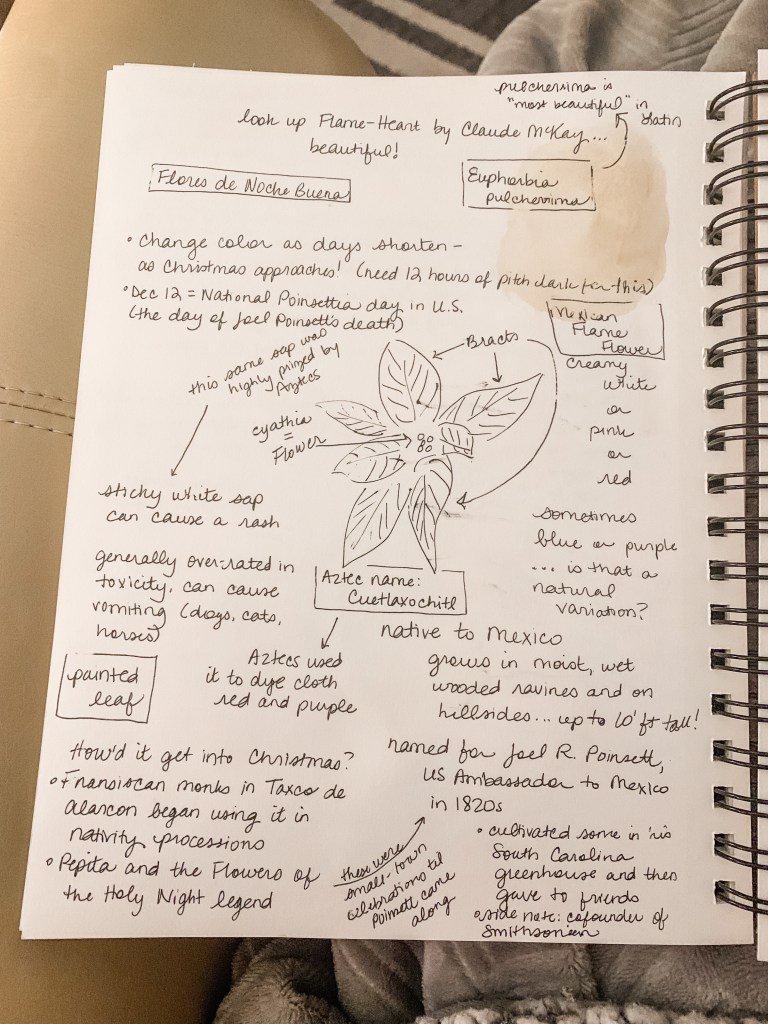 pulcherrima is
"most beautiful" in
Latin
look up Flame-Heart by Claude McKay...
beautiful!
Flores de Noche Buena
Euphorbia
pulcherrima
• Change color as days shorten –
as Christmas approaches! (need 12 hours of pitch dark for this)
• Dec 12 = National Poinsettia day in U.S.
(the day of Joel Poinsett's death)
Mexican
Flame
Flower
creamy
white
or
pink
or
red
Bracts
this same sap was
highly prized by
Aztecs
cyathia
=
Flower
sticky white sap
can cause a rash
sometimes
blue or purple
... is that a
natural
variation?
generally over-rated in
toxicity, can cause
vomiting (dogs, cats,
horses)
Aztec name:
Cuetlaxochitl
native to Mexico
grows in moist, wet
wooded ravines and on
hillsides... up to 10' ft tall!
Aztecs used
it to dye cloth
red and purple
painted
leaf
How'd it get into Christmas?
• Fransiscan monks in Taxco de
Alarcon began using it in
nativity processions
• Pepita and the Flowers of
the Holy Night legend
named for Joel R. Poinsett,
US Ambassador to Mexico
in 1820s
these were
small-town
celebrations til
Poinsett came
along
• cultivated some in his
South Carolina
greenhouse and then
gave to friends
• side note: cofounder of
Smithsonian